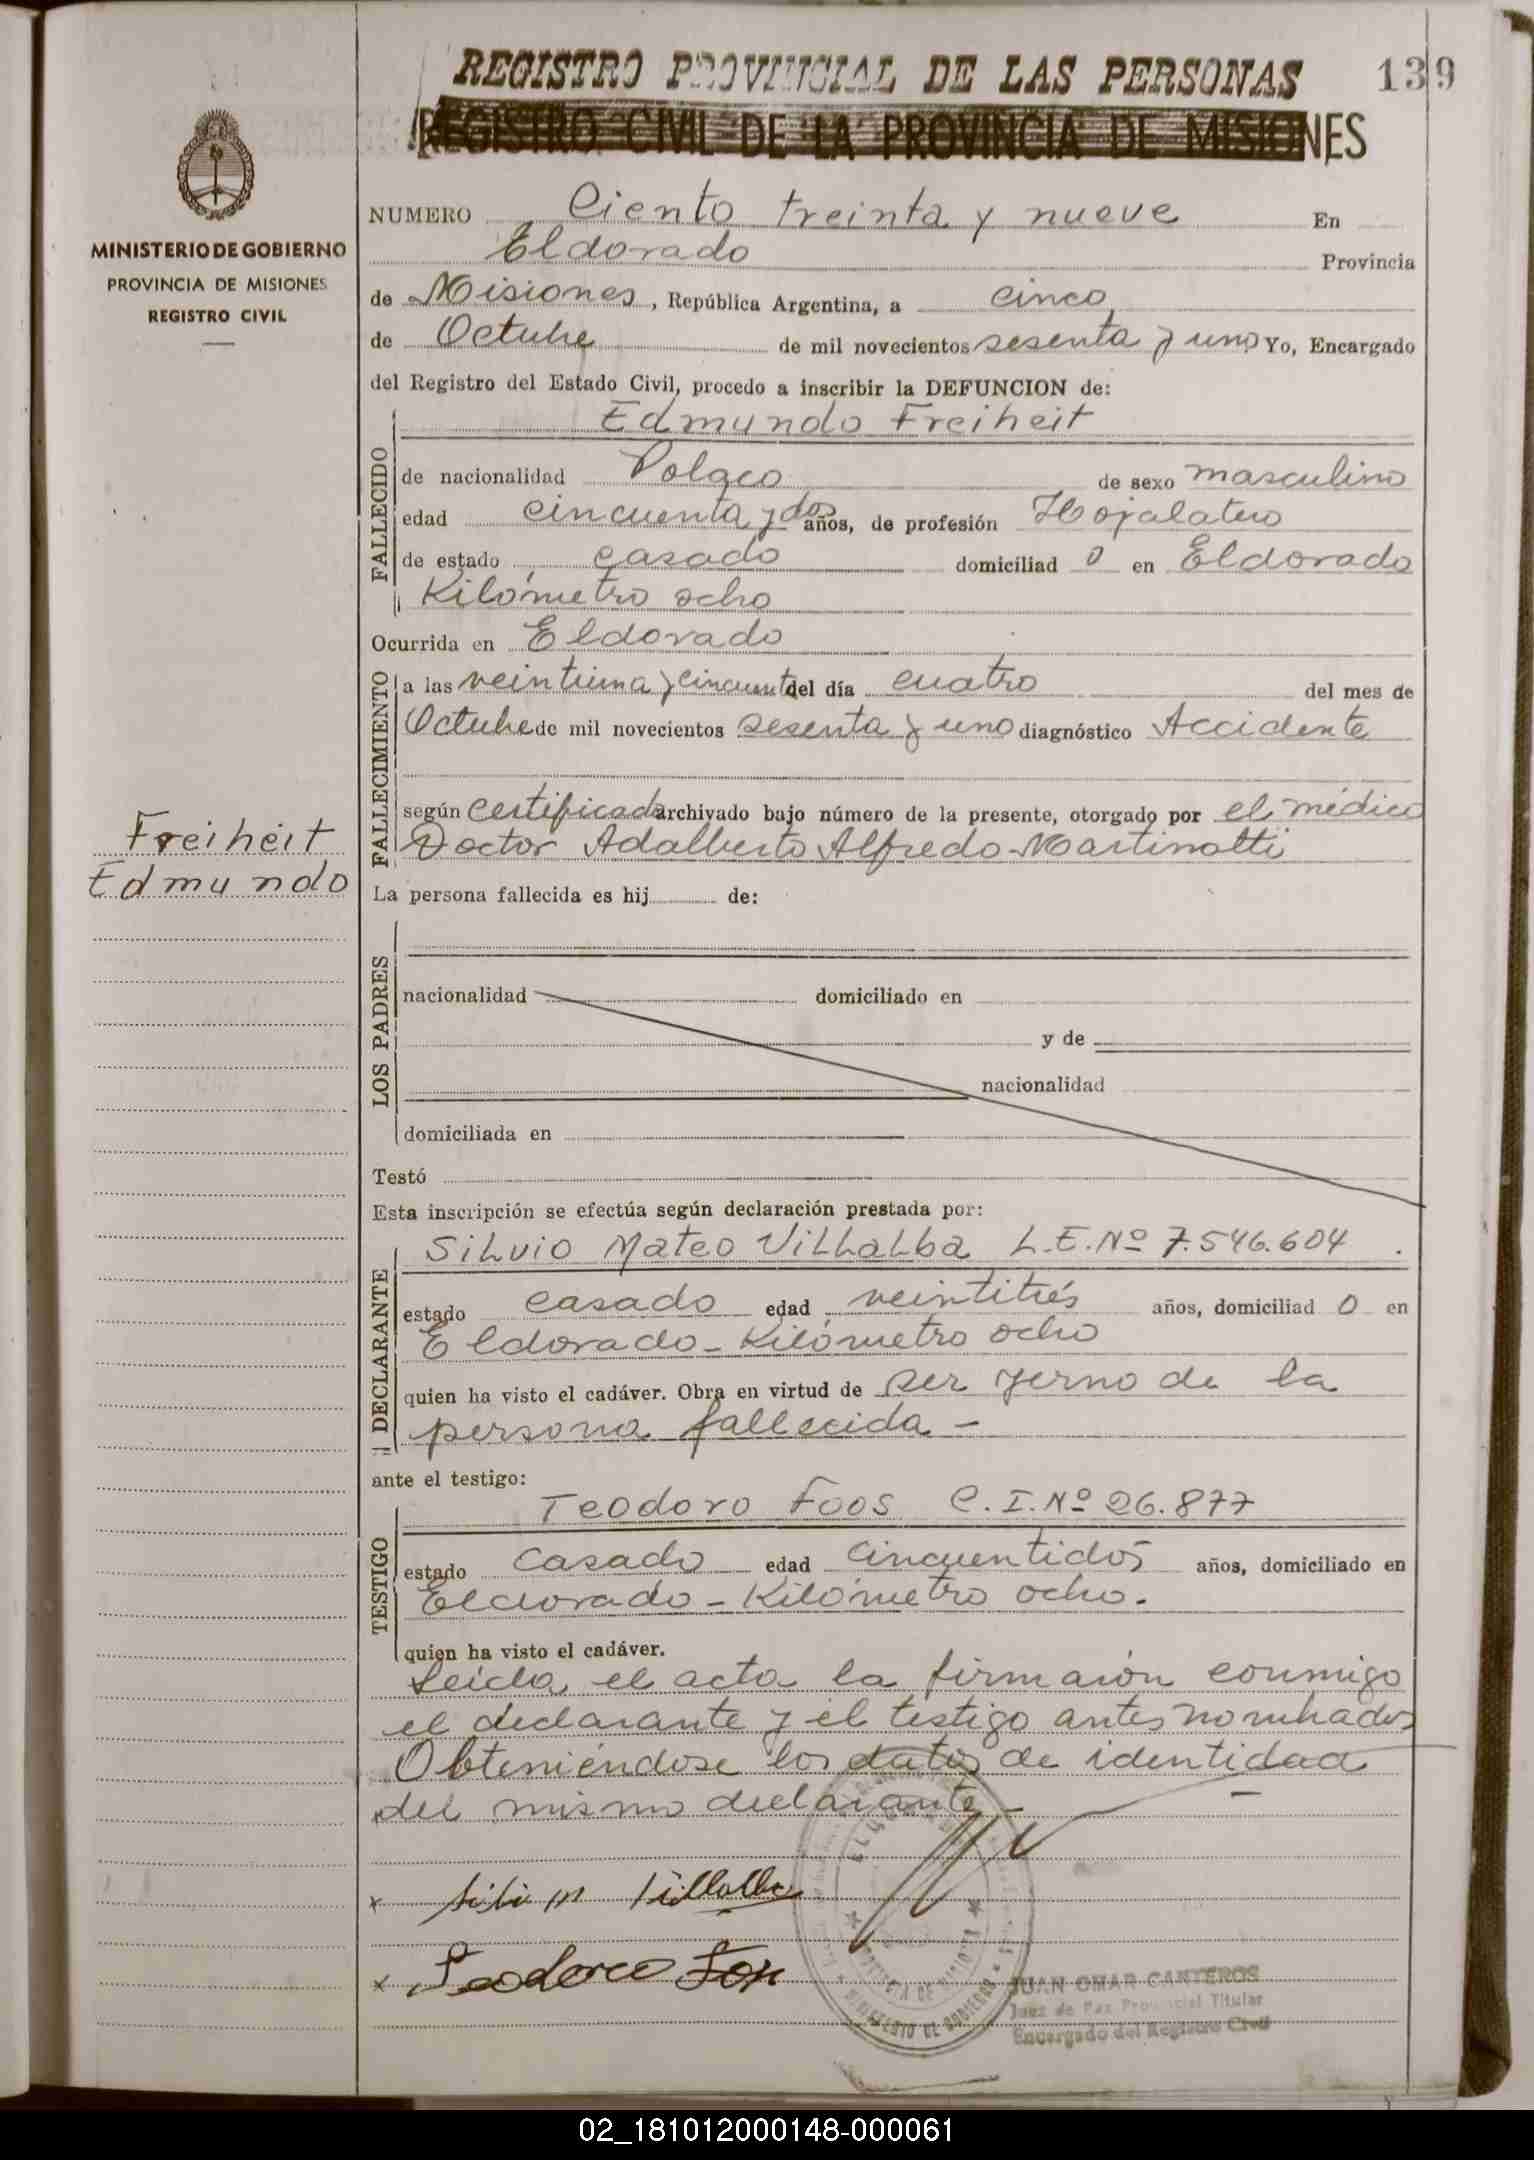 REGISTRO PROVINCIAL DE LAS PERSONAS 139
REGISTRO CIVIL DE LA PROVINCIA DE MISIONES
MINISTERIO DE GOBIERNO
PROVINCIA DE MISIONES
REGISTRO CIVIL
NUMERO Ciento treinta y nueve En
Eldorado Provincia
de Misiones, República Argentina, a cinco
de Octubre de mil novecientos sesenta y uno Yo, Encargado
del Registro del Estado Civil, procedo a inscribir la DEFUNCION de:
FALLECIDO
Edmundo Freiheit
de nacionalidad Polaco de sexo masculino
edad cincuenta y dos años, de profesión Hojalatero
de estado casado domiciliad o en Eldorado
Kilómetro ocho
Ocurrida en Eldorado
FALLECIMIENTO
a las veintiuna y cincuenta del día cuatro del mes de
Octubre de mil novecientos sesenta y uno diagnóstico Accidente
según certificado archivado bajo número de la presente, otorgado por el médico
Doctor Adalberto Alfredo Martinotti
Freiheit
Edmundo
La persona fallecida es hij de:
LOS PADRES
nacionalidad domiciliado en
y de
nacionalidad
domiciliada en
Testó
Esta inscripción se efectúa según declaración prestada por:
DECLARANTE
Silvio Mateo Villalba L.E. Nº 7.546.604.
estado casado edad veintitrés años, domiciliad o en
Eldorado - Kilómetro ocho
quien ha visto el cadáver. Obra en virtud de ser yerno de la
persona fallecida -
ante el testigo:
TESTIGO
Teodoro Foos C.I. Nº 26.877
estado casado edad cincuentidós años, domiciliado en
Eldorado - Kilómetro ocho.
quien ha visto el cadáver.
Leída el acta la firmaron conmigo
el declarante y el testigo antes nombrados
Obteniéndose los datos de identidad
del mismo declarante -
x Silvio M Villalba
x Teodoro Foos
MINISTERIO DE GOBIERNO
JUAN OMAR CANTEROS
Juez de Paz Provincial Titular
Encargado del Registro Civil
02_181012000148-000061